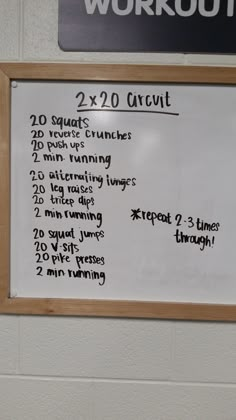 WORKOUT
2x20 Circuit
20 squats
20 reverse crunches
20 push ups
2 min. running
20 alternating lunges
20 leg raises
20 tricep dips
2 min running
*repeat 2-3 times
through!
20 squat jumps
20 V-sits
20 pike presses
2 min running